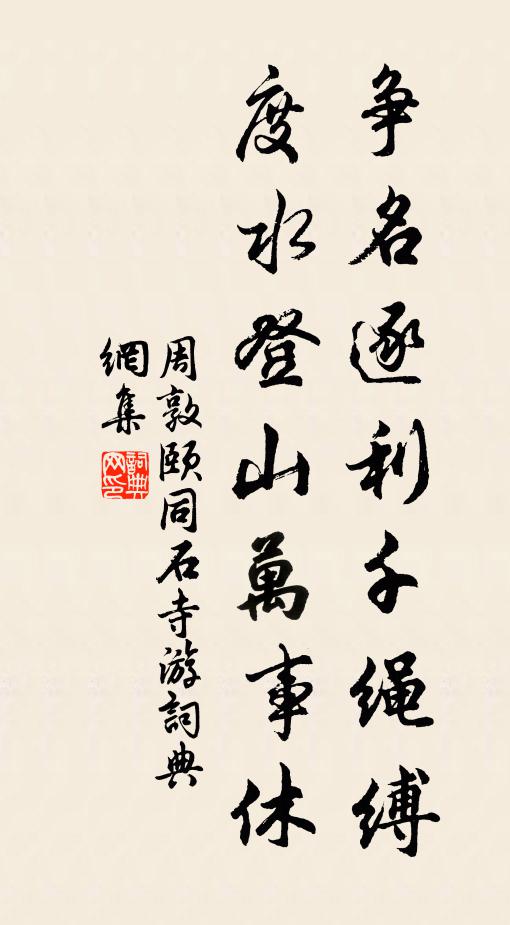 争名逐利千绳缚
度水登山萬事休
周敦颐同石寺游詞典
網集
詞典网印